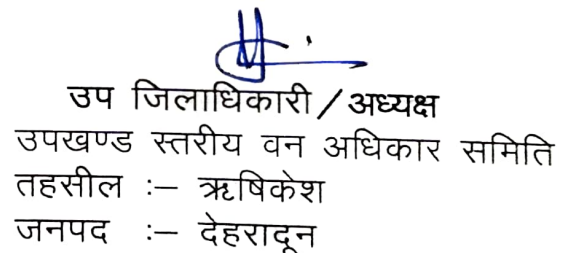 उप जिलाधिकारी / अध्यक्ष
उपखण्ड स्तरीय वन अधिकार समिति
तहसील :– ऋषिकेश
जनपद :– देहरादून